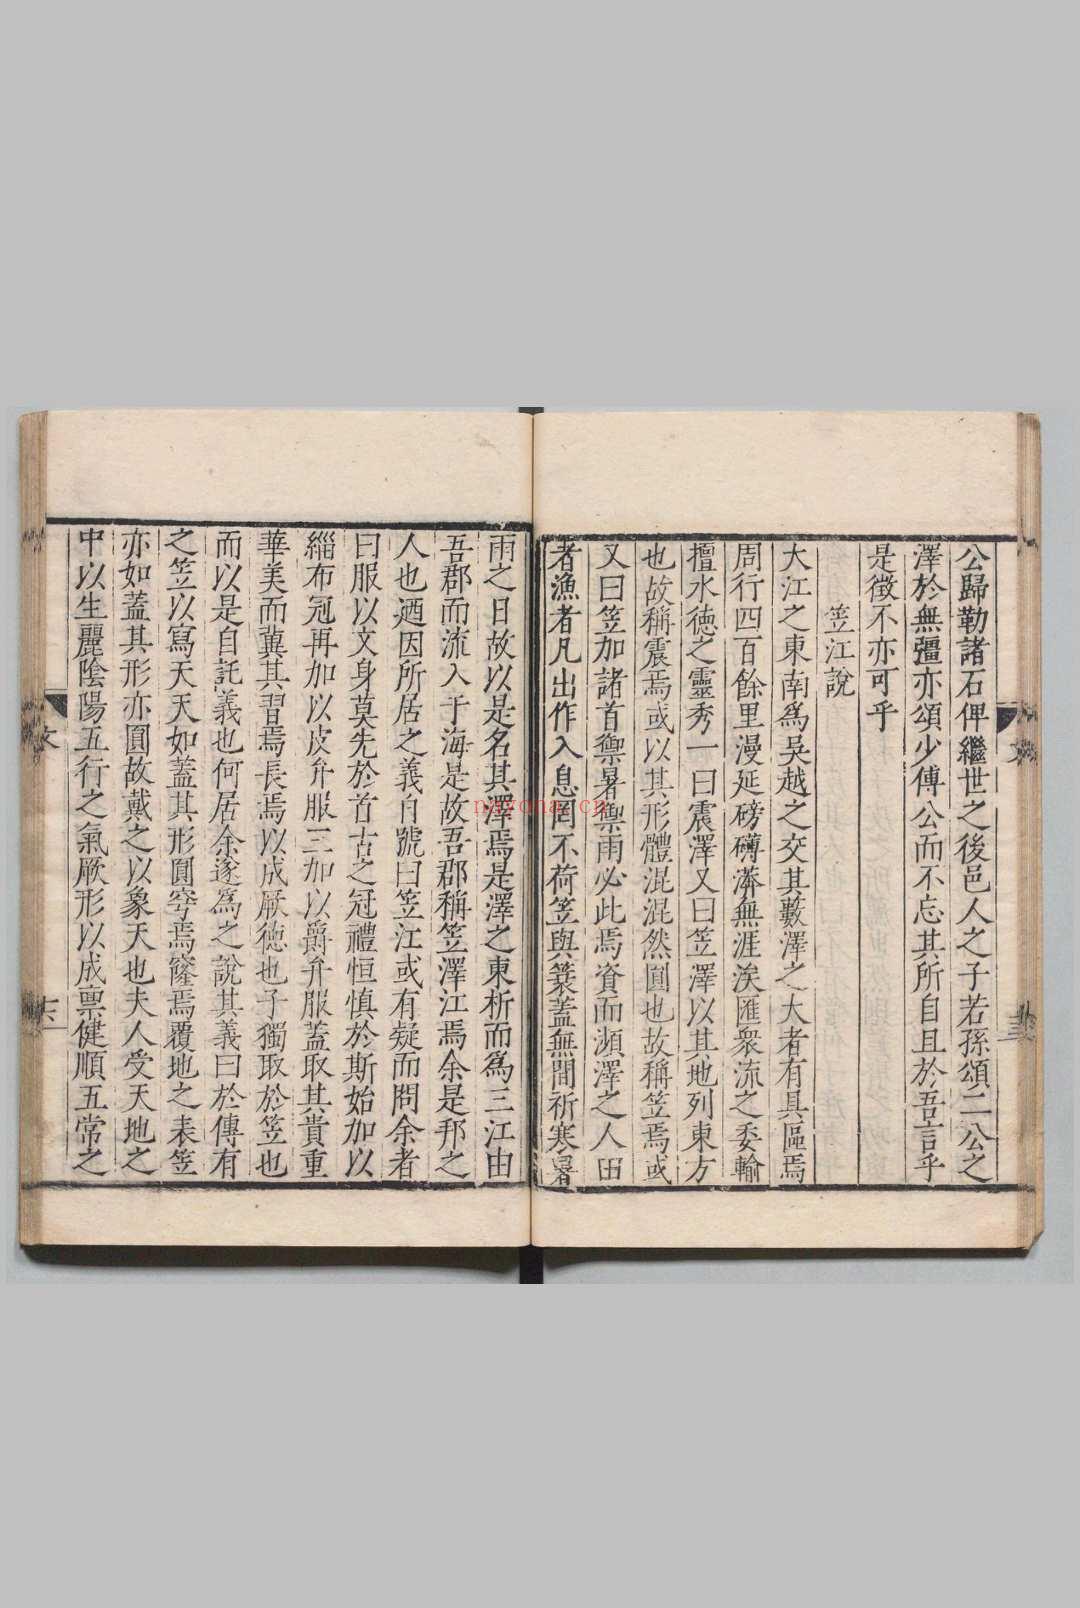 公歸勒諸石俾繼世之後邑人之子若孫頌二公之
澤於無彊亦頌少傅公而不忘其所自且於吾言乎
是徵不亦可乎
笠江說
大江之東南爲吳越之交其藪澤之大者有具區焉
周行四百餘里漫延磅礴濟無涯涘匯衆流之委輸
擅水德之靈秀一曰震澤又曰笠澤以其地列東方
也故稱震焉或以其形體混混然圓也故稱笠焉或
又曰笠加諸首禦暑禦雨必此焉資而瀕澤之人田
者漁者凡出作入息罔不荷笠與簑蓋無間祈寒暑
雨之日故以是名其澤焉是澤之東析而爲三江由
吾郡而流入于海是故吾郡稱笠澤江焉余是邦之
人也迺因所居之義自號曰笠江或有疑而問余者
曰服以文身莫先於首古之冠禮恒慎於斯始加以
緇布冠再加以皮弁服三加以爵弁服蓋取其貴重
華美而冀其習焉長焉以成厥德也子獨取於笠也
而以是自託義也何居余遂爲之說其義曰於傳有
之笠以寫天天如蓋其形圓穹焉窿焉覆地之表笠
亦如蓋其形亦圓故戴之以象天也夫人受天地之
中以生麗陰陽五行之氣厥形以成禀健順五常之
文
文
nayona.cn